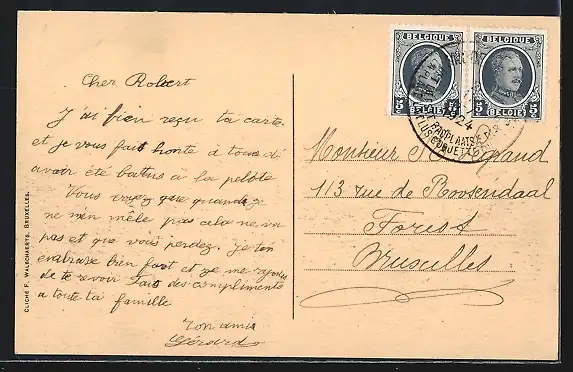 Cher Robert
J'ai bien reçu ta carte.
et je vous fait honte à tous dé
avoir été battus à la pelote
Vous voyez que quand je
ne m'en mêle pas cela ne va
pas et que vous perdez. Je t'en
embrasse bien fort et je me réjouis
de te revoir. Fais des compliments
a toute ta famille
Ton ami
Gérard
BELGIQUE
BELGIQUE
5 BELGIË 5
5 BELGIË 5
1924
Monsieur R.
113 rue de Roosendaal
Forest
Bruxelles
CLICHÉ F. WALSCHAERTS, BRUXELLES.